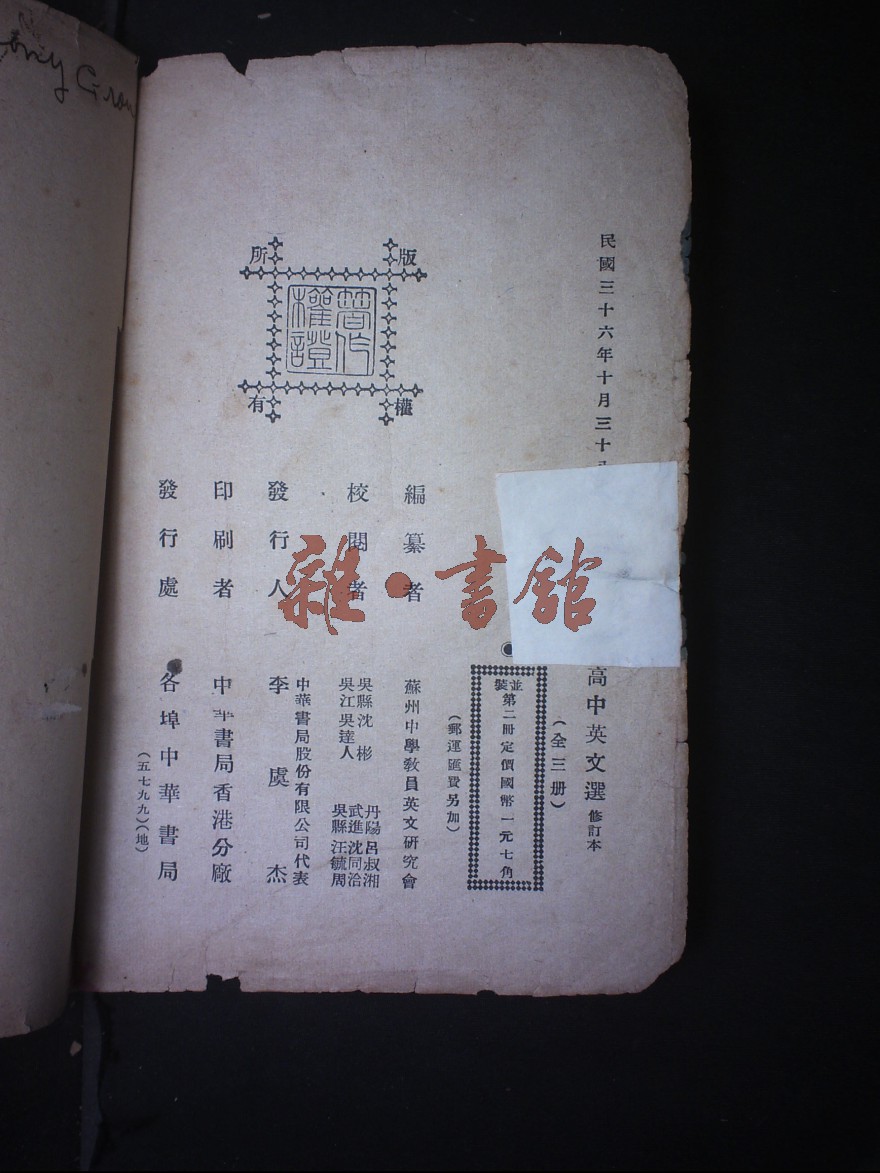 民國三十六年十月三十
高中英文選 修訂本
(全三册)
並裝 第二册定價國幣一元七角
(郵運匯費另加)
編纂者 蘇州中學敎員英文研究會
校閱者 吳縣沈彬 丹陽呂叔湘
吳江吳達人 武進沈同洽
吳縣汪毓周
中華書局股份有限公司代表
發行人 李虞杰
印刷者 中華書局香港分廠
發行處 各埠中華書局
(五七九九)(地)
版權所有
著作權證
雜·書館